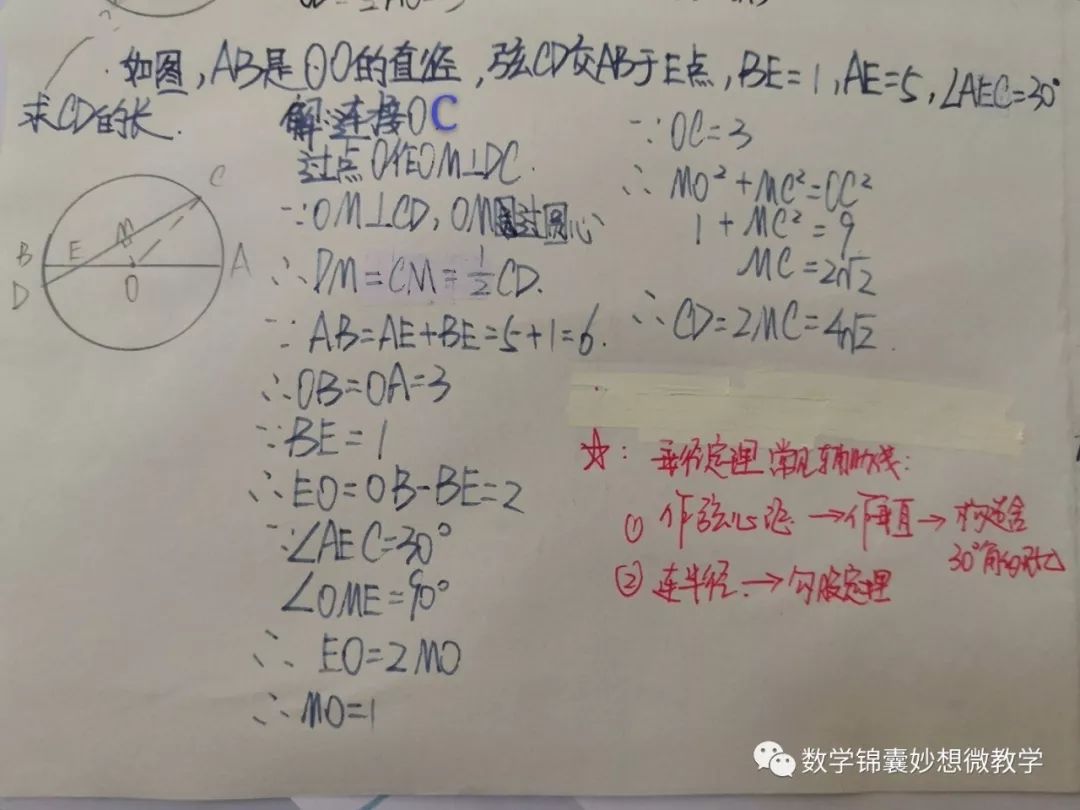 如图,AB是⊙O的直径,弦CD交AB于E点,BE=1,AE=5,∠AEC=30°
求CD的长.
解:连接OC
过点O作OM⊥DC.
∵OM⊥CD,OM过圆心
∴DM=CM=½CD.
∵AB=AE+BE=5+1=6.
∴OB=OA=3
∵BE=1
∴EO=OB-BE=2
∵∠AEC=30°
∠OME=90°
∴EO=2MO
∴MO=1
∵OC=3
∴MO²+MC²=OC²
1+MC²=9
MC=2√2
∴CD=2MC=4√2.
☆:垂径定理常见辅助线:
① 作弦心距→作垂直→构造含
30°角的Rt△
② 连半径.→勾股定理
C
B E M A
D O
数学锦囊妙想微教学